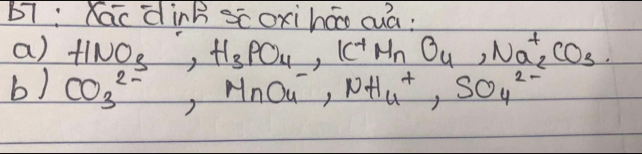 b7: Xác định số oxi hóa của:
a) HNO₃, H₃PO₄, K⁺MnO₄, Na₂⁺CO₃.
b) CO₃²⁻, MnO₄⁻, NH₄⁺, SO₄²⁻